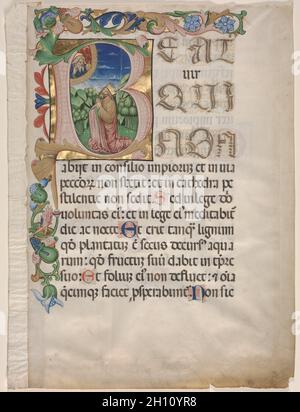 BEAT
uir
QUI
NON
abijt in consilio impiorum et in uia
peccatorum non stetit: et in cathedra pe
stilentie non sedit: Sed in lege domini
uoluntas eius: et in lege eius meditabitur
die ac nocte Et erit tanquam lignum
quod plantatum est secus decursus aqua
rum: quod fructum suum dabit in tempore
suo: Et folium eius non defluet: et omnia
quecunque faciet prosperabuntur: Non sic
alamy
alamy
Image ID: 2H10YR8
www.alamy.com